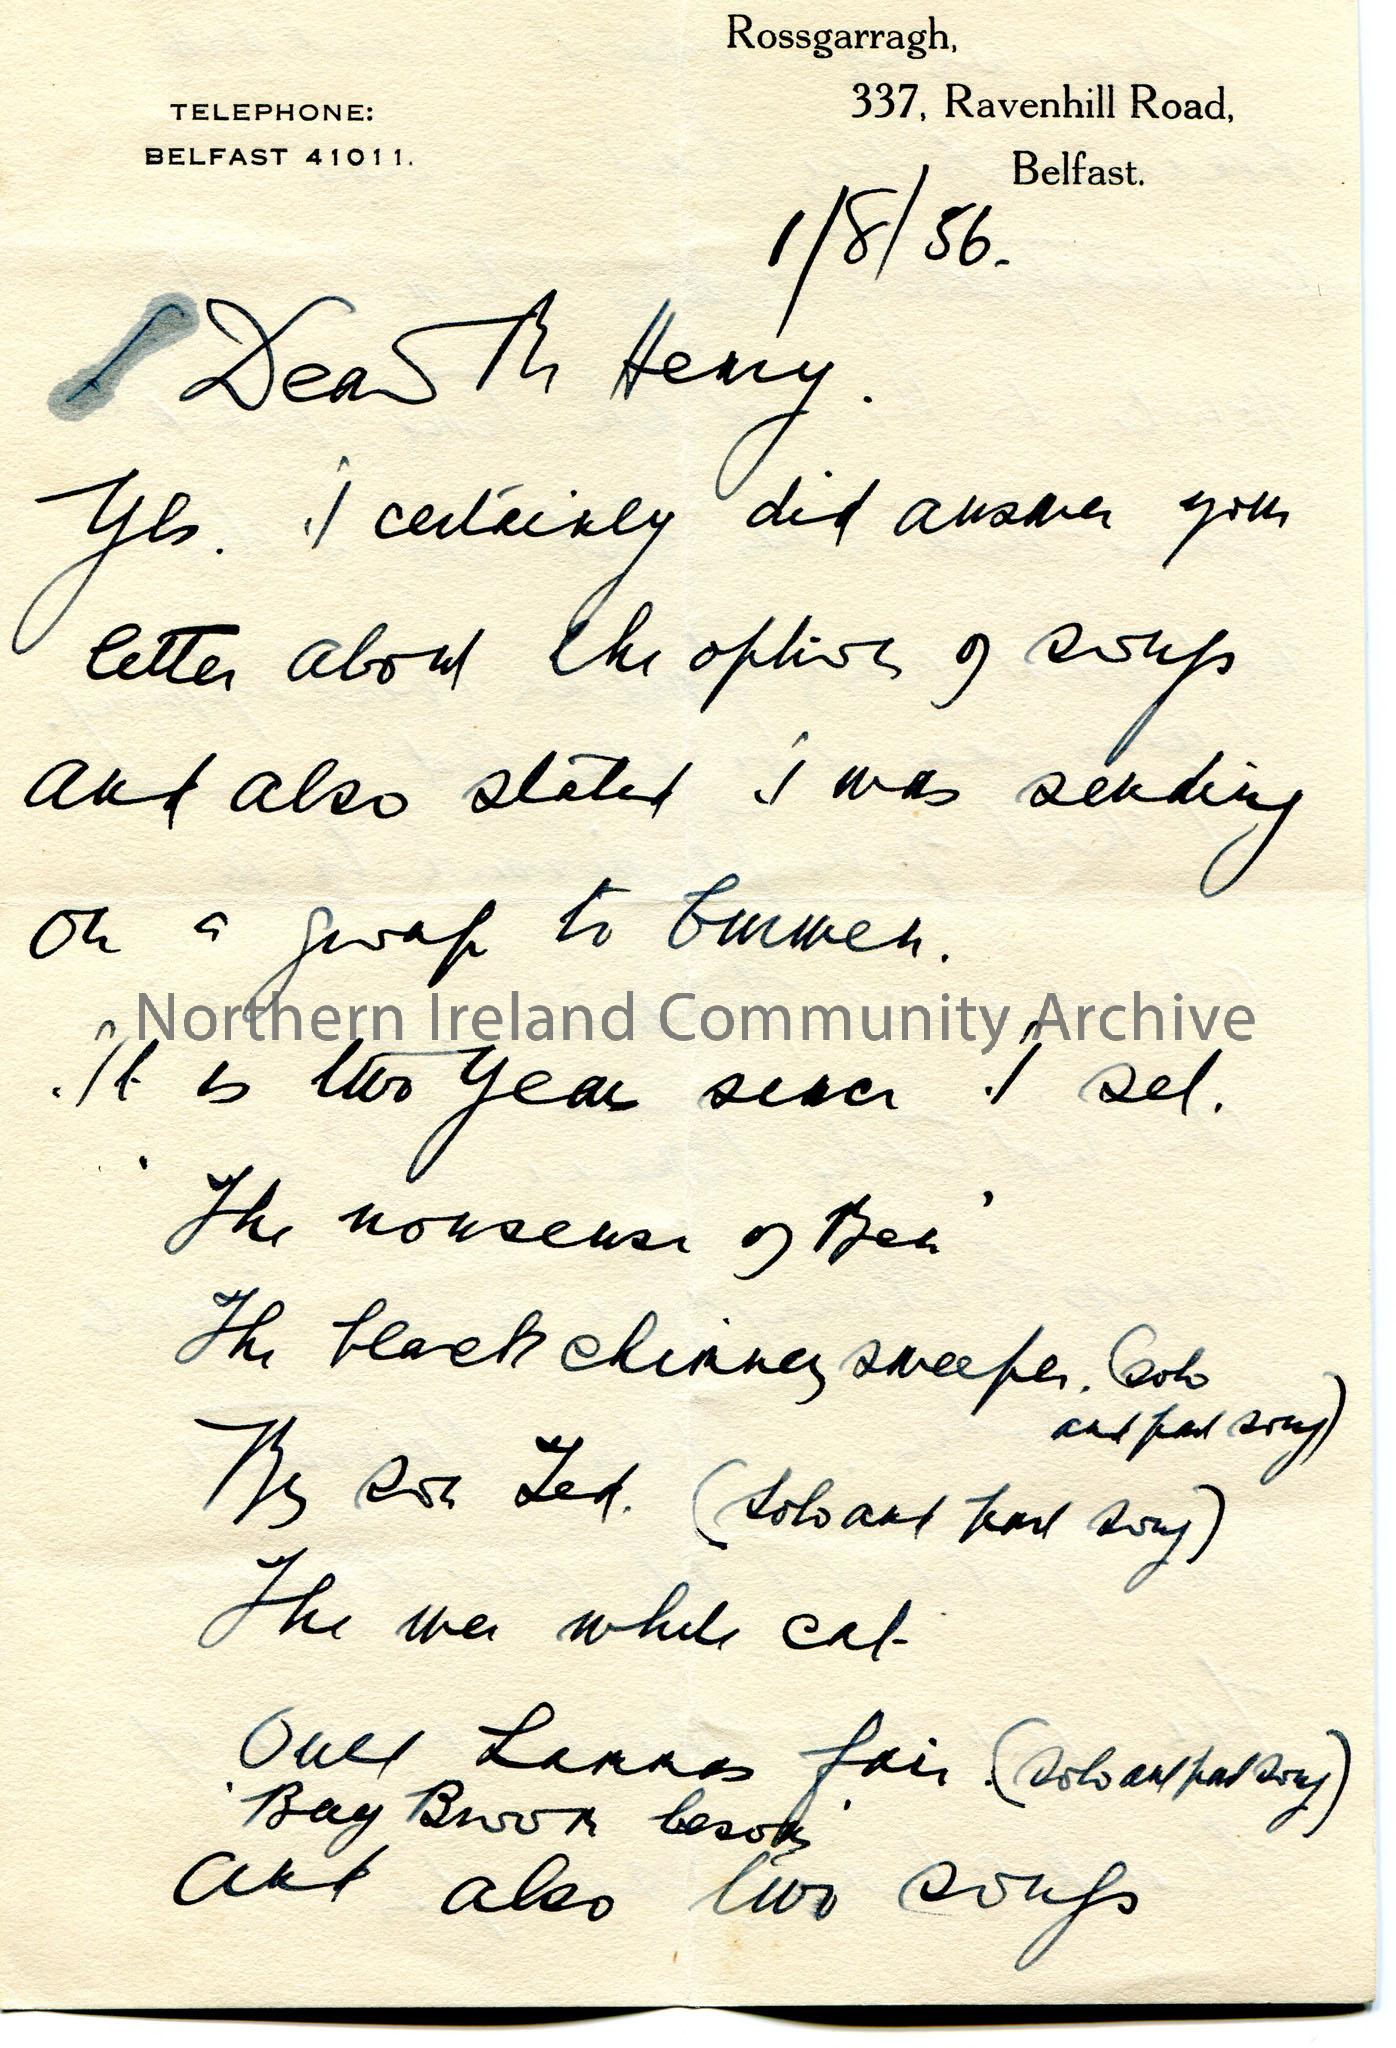 Rossgarragh,
337, Ravenhill Road,
Belfast.
TELEPHONE:
BELFAST 41011.
1/8/56.
Dear Mr Henry.
Yes. I certainly did answer your
letter about the option of songs
and also stated I was sending
on a group to Emmen.
Northern Ireland Community Archive
It is two years since I set.
'The nonsense of Ben'
The black chimney sweeper. (solo
and part song)
My son Ted. (Solo and part song)
The wee white cat
Ould Lammas fair. (solo and part song)
'Buy Broom besoms'
and also two songs